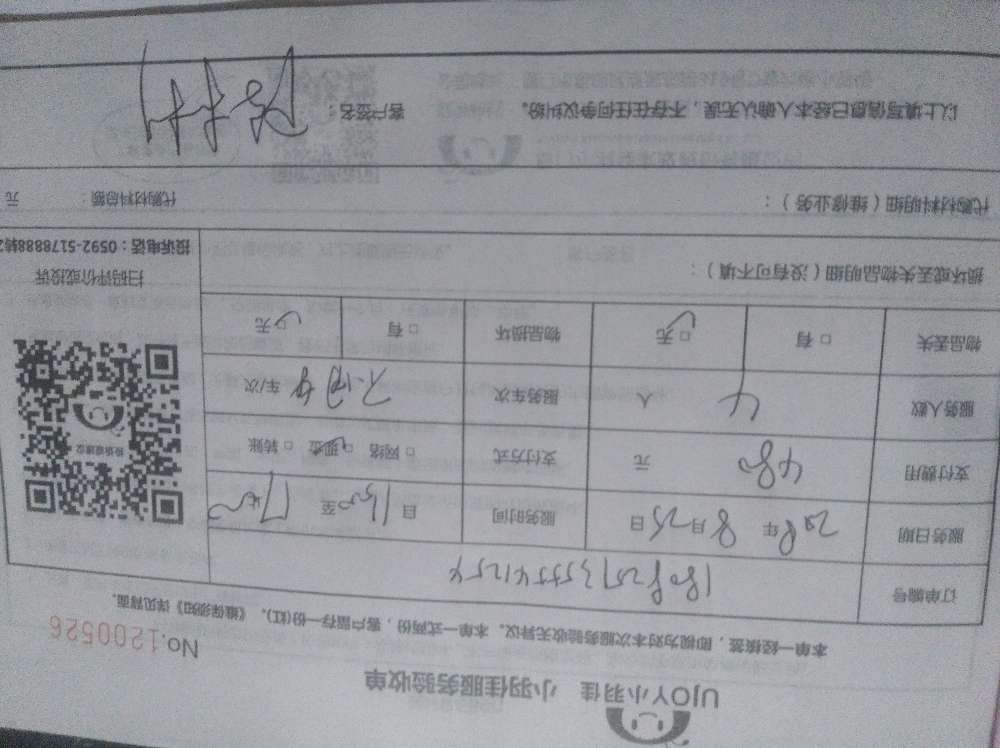 UJOY小羽佳 小羽佳服务验收单
No.1200526
本单一经核签，即视为对本次服务验收无异议。本单一式两份，客户留存一份(红)。《维保须知》详见背面。
订单编号
服务日期 2018年 8月25日 服务时间 自 至
支付费用 480 元 支付方式 □网络 □现金 □转账
服务人数 4 人 服务车次 车/次
物品丢失 □有 □无 物品损坏 □有 □无
扫码评价或投诉
投诉电话：0592-5178888转2
损坏或丢失物品明细（没有可不填）：
代购材料明细（维修业务）： 代购材料总额： 元
以上填写信息已经本人确认无误，不存在任何争议纠纷。 客户签名：